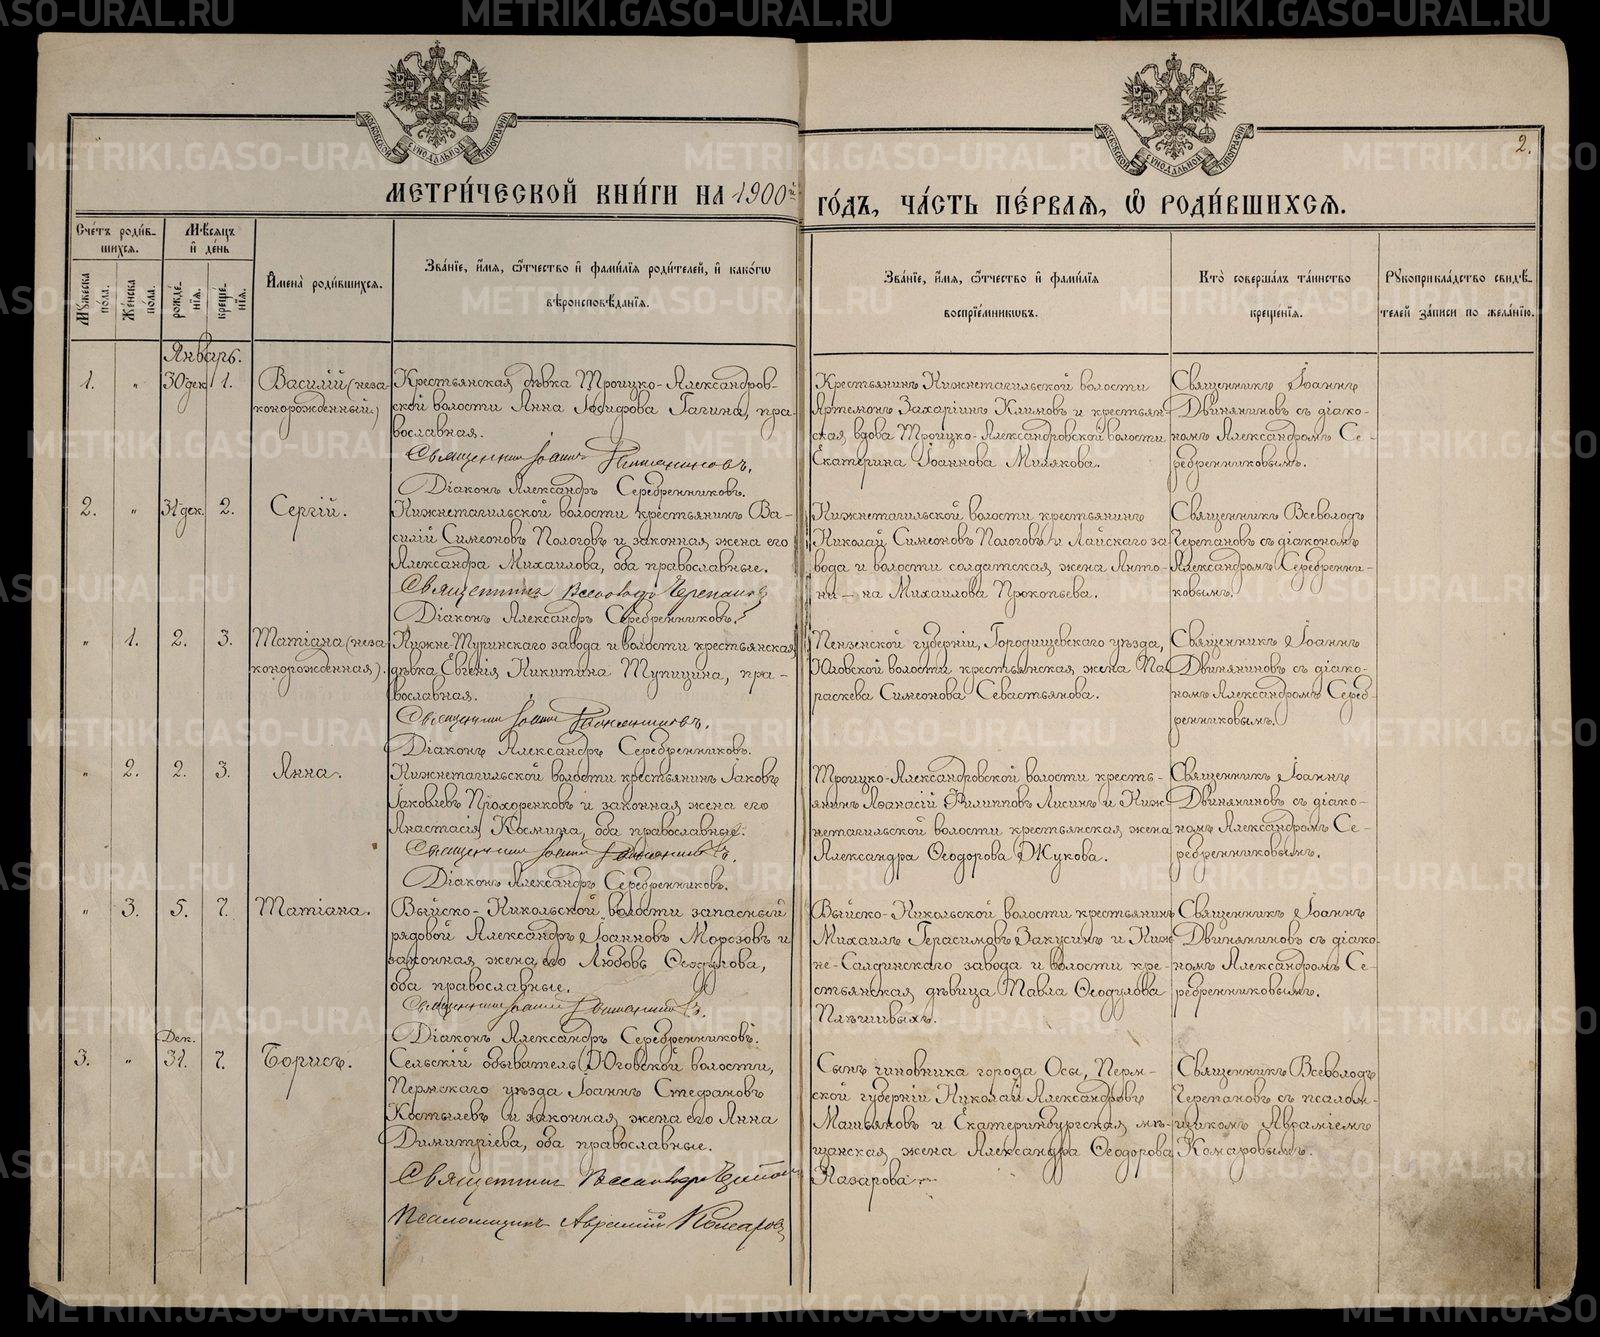 МЕТРИ́ЧЕСКОЙ КНИ́ГИ НА 1900й ГО́ДЪ, ЧА́СТЬ ПЕ́РВАѦ, Ѡ РОДИ́ВШИХСѦ.
2.
Сче́тъ роди́в-
шихсѧ.
Мѣ́сѧцъ
и де́нь
Мꙋ́жеска
по́ла.
Же́нска
по́ла.
рожде́-
нїѧ.
креще-
нїѧ.
Имена̀ роди́вшихсѧ.
Зва́нїе, и́мѧ, ѻ҆́тчество и фами́лїѧ роди́телей, и како́гѡ
вѣроисповѣ́данїѧ.
Зва́нїе, и́мѧ, ѻ҆́тчество и фами́лїѧ
воспрїе́мникѡвъ.
Кто̀ соверша́лъ та́инство
креще́нїѧ.
Рꙋкоприкла́дство свидѣ́-
телей за́писи по жела́нїю.
Январь.
1.
"
30 дек.
1.
Василій (неза-
конорожденный)
Крестьянская дѣвка Троицко-Александров-
ской волости Анна Іосифова Гагина, пра-
вославная.
Священникъ Іоаннъ Двиняниновъ.
Діаконъ Александръ Серебренниковъ.
Крестьянинъ Нижнетагильской волости
Артемонъ Захаріинъ Климовъ и крестьян-
ская вдова Троицко-Александровской волости
Екатерина Іоаннова Милякова.
Священникъ Іоаннъ
Двиняниновъ съ діако-
номъ Александромъ Се-
ребренниковымъ.
2.
"
31 дек.
2.
Сергій.
Нижнетагильской волости крестьянинъ Ва-
силій Симеоновъ Пологовъ и законная жена его
Александра Михаилова, оба православные.
Священникъ Всеволодъ Черепановъ
Діаконъ Александръ Серебренниковъ.
Нижнетагильской волости крестьянинъ
Николай Симеоновъ Пологовъ и Лайскаго за-
вода и волости солдатская жена Анто-
ни — на Михаилова Прокопьева.
Священникъ Всеволодъ
Черепановъ съ діакономъ
Александромъ Серебренни-
ковымъ.
"
1.
2.
3.
Татіана (неза-
конорожденная).
Нижне-Туринскаго завода и волости крестьянская
дѣвка Евгенія Никитина Тупицина, пра-
вославная.
Священникъ Іоаннъ Двиняниновъ.
Діаконъ Александръ Серебренниковъ.
Пензенской губерніи, Городищевскаго уѣзда,
Юловской волости крестьянская жена Па-
раскева Симеонова Севастьянова.
Священникъ Іоаннъ
Двиняниновъ съ діако-
номъ Александромъ Сереб-
ренниковымъ.
"
2.
2.
3.
Анна.
Нижнетагильской волости крестьянинъ Іаковъ
Іаковлевъ Прохоренковъ и законная жена его
Анастасія Космина, оба православные.
Священникъ Іоаннъ Двиняниновъ.
Діаконъ Александръ Серебренниковъ.
Троицко-Александровской волости кресть-
янинъ Аѳанасій Филипповъ Лисинъ и Ниж-
нетагильской волости крестьянская жена
Александра Ѳеодорова Жукова.
Священникъ Іоаннъ
Двиняниновъ съ діако-
номъ Александромъ Се-
ребренниковымъ.
"
3.
5.
7.
Татіана.
Выйско-Никольской волости запасный
рядовой Александръ Іоанновъ Морозовъ и
законная жена его Любовь Ѳеодулова,
оба православные.
Священникъ Іоаннъ Двиняниновъ.
Діаконъ Александръ Серебренниковъ.
Выйско-Никольской волости крестьянинъ
Михаилъ Герасимовъ Закусинъ и Ниж-
не-Салдинскаго завода и волости кре-
стьянская дѣвица Павла Ѳеодулова
Плѣшивыхъ.
Священникъ Іоаннъ
Двиняниновъ съ діако-
номъ Александромъ Се-
ребренниковымъ.
3.
"
Дек.
31.
7.
Борисъ.
Сельскій обыватель Юговской волости,
Пермскаго уѣзда Іоаннъ Стефановъ
Костылевъ и законная жена его Анна
Димитріева, оба православные.
Священникъ Всеволодъ Черепановъ
Псаломщикъ Аврамій Комаровъ
Сынъ чиновника города Осы, Перм-
ской губерніи Николай Александровъ
Машьяновъ и Екатеринбургская мѣ-
щанская жена Александра Ѳеодорова
Назарова.
Священникъ Всеволодъ
Черепановъ съ псалом-
щикомъ Авраміемъ
Комаровымъ.